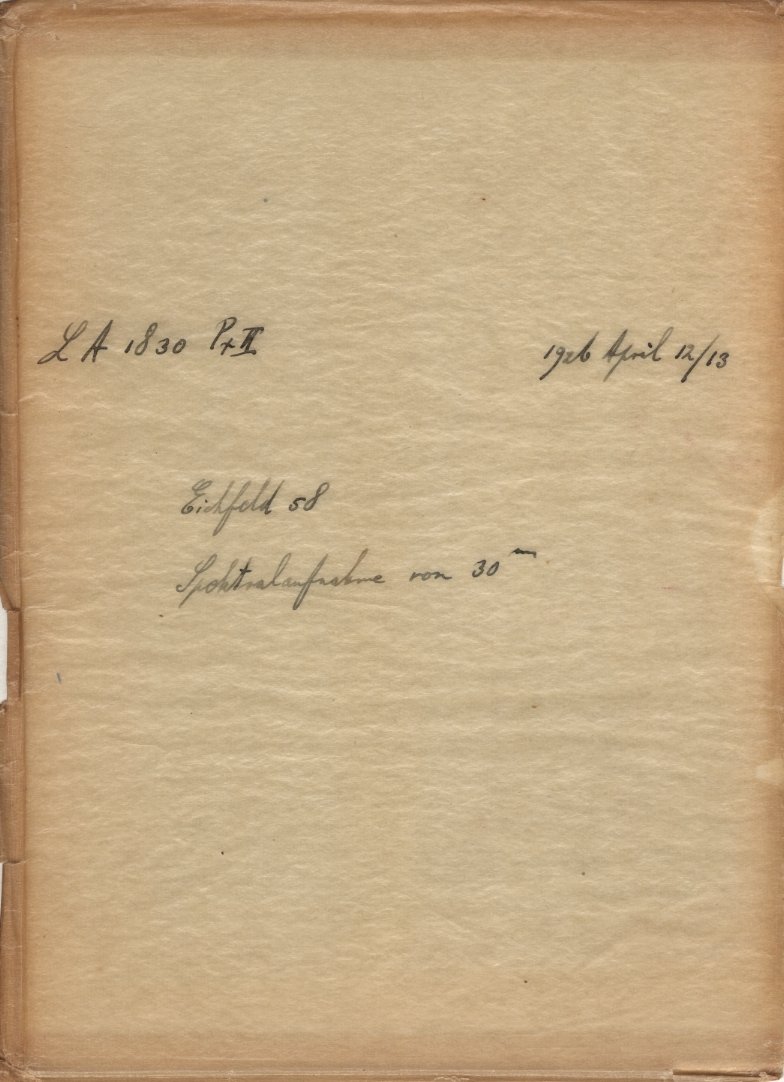 LA 1830 Pr II 1926 April 12/13
Eichfeld 58
Spektralaufnahme von 30 m